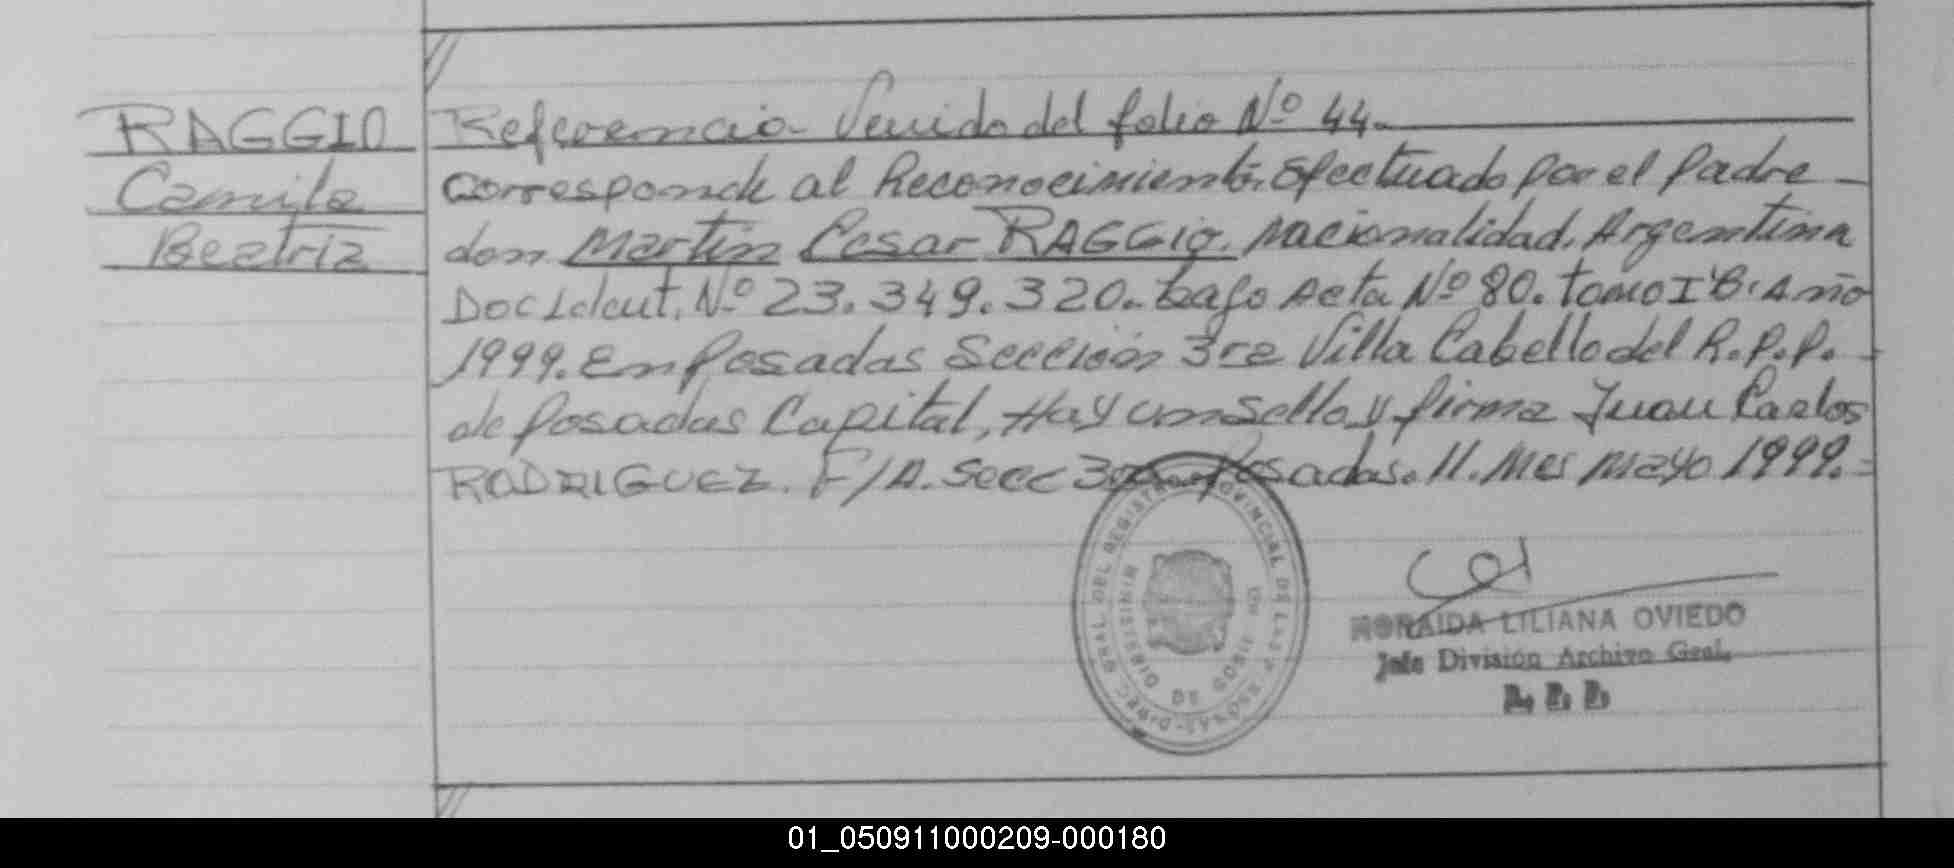 RAGGIO
Camila
Beatriz
Referencia Venida del folio Nº 44.
Corresponde al Reconocimiento. Efectuado por el Padre
don Martin Cesar RAGGIO. Nacionalidad. Argentina
Doc Ident. Nº 23.349.320. bajo Acta Nº 80. tomo I "B". Año
1999. En Posadas Sección 3ra Villa Cabello del R.P.P.
de Posadas Capital, Hay un sello y firma Juan Carlos
RODRIGUEZ. F/A. Secc 3ra. Posadas. 11. Mes Mayo 1999.=
DIREC. GRAL. DEL REGISTRO PROVINCIAL DE LAS PERSONAS
MINISTERIO DE GOBIERNO
NORAIDA LILIANA OVIEDO
Jefe División Archivo Gral.
01_050911000209-000180